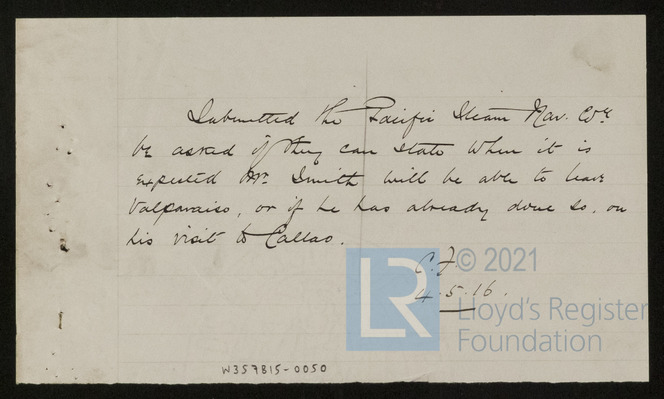 Submitted the Pacific Steam Nav. Coy
be asked if they can state when it is
expected Mr. Smith will be able to leave
Valparaiso, or if he has already done so, on
his visit to Callao.
C.F.
4.5.16.
LR
© 2021
Lloyd's Register
Foundation
W357815-0050